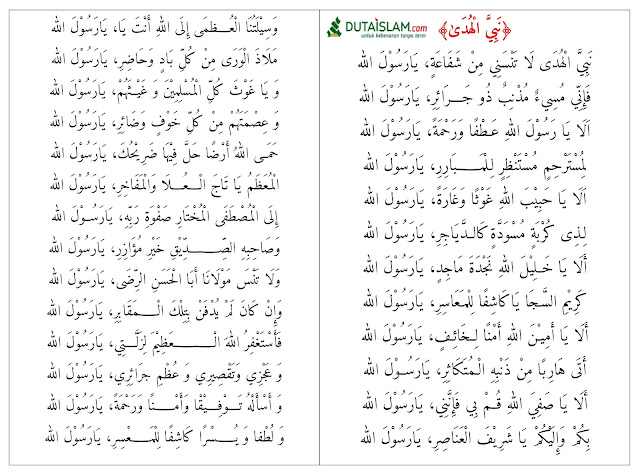 DUTAISLAM.com
untuk kebenaran tanpa teror
﴿نَبِيَّ الْهُدَىٰ﴾
نَبِيَّ الْهُدَى لَا تَنْسَنِي مِنْ شَفَاعَةٍ، يَارَسُوْلَ الله
فَإِنِّي مُسِيءٌ مُذْنِبٌ ذُو جَرَائِرٍ، يَارَسُوْلَ الله
اَلَا يَا رَسُوْلَ اللهِ عَطْفًا وَرَحْمَةً، يَارَسُوْلَ الله
لِمُسْتَرْحِمٍ مُسْتَنْظِرٍ لِلْمَبَارِرِ، يَارَسُوْلَ الله
اَلَا يَا حَبِيْبَ اللهِ غَوْثًا وَغَارَةً، يَارَسُوْلَ الله
لِذِى كُرْبَةٍ مُسْوَدَّةٍ كَالدَّيَاجِرِ، يَارَسُوْلَ الله
أَلَا يَا خَلِيْلَ اللهِ نَجْدَةَ مَاجِدٍ، يَارَسُوْلَ الله
كَرِيْمِ السَّجَايَا كَاشِفًا لِلْمَعَاسِرِ، يَارَسُوْلَ الله
أَلَا يَا أَمِيْنَ اللهِ أَمْنًا لِخَائِفٍ، يَارَسُوْلَ الله
أَتَى هَارِبًا مِنْ ذَنْبِهِ الْمُتَكَاثِرِ، يَارَسُوْلَ الله
أَلَا يَا صَفِيَّ اللهِ قُمْ بِي فَإِنَّنِي، يَارَسُوْلَ الله
بِكُمْ وَإِلَيْكُمْ يَا شَرِيْفَ الْعَنَاصِرِ، يَارَسُوْلَ الله
وَسِيْلَتُنَا الْعُظْمَى إِلَى اللهِ أَنْتَ يَا، يَارَسُوْلَ الله
مَلَاذَ الْوَرَى مِنْ كُلِّ بَادٍ وَحَاضِرٍ، يَارَسُوْلَ الله
وَ يَا غَوْثَ كُلِّ الْمُسْلِمِيْنَ وَ غَيْثُهُمْ، يَارَسُوْلَ الله
وَ عِصْمَتَهُمْ مِنْ كُلِّ خَوفٍ وَضَائِرٍ، يَارَسُوْلَ الله
حَمَى اللهُ أَرْضًا حَلَّ فِيْهَا ضَرِيْحُكَ، يَارَسُوْلَ الله
الْمُعَظَمُ يَا تَاجَ الْعُلَا وَالْمَفَاخِرِ، يَارَسُوْلَ الله
إِلَى الْمُصْطَفَى الْمُخْتَارِ صَفْوَةِ رَبِّهِ، يَارَسُوْلَ الله
وَصَاحِبِهِ الصِّدِّيْقِ خَيْرِ مُؤَازِرٍ، يَارَسُوْلَ الله
وَلَا تَنْسَ مَوْلَانَا أَبَا الْحَسَنِ الرِّضَى، يَارَسُوْلَ الله
وَإِنْ كَانَ لَمْ يُدْفَنْ بِتِلْكَ الْمَقَابِرِ، يَارَسُوْلَ الله
فَأَسْتَغْفِرُ اللهَ الْعَظِيْمَ لِزَلَّتِي، يَارَسُوْلَ الله
وَ عَجْزِي وَتَقْصِيْرِي وَ عُظْمِ جَرَائِرِي، يَارَسُوْلَ الله
وَ أَسْأَلُهُ تَوْفِيْقًا وَأَمْنًا وَرَحْمَةً، يَارَسُوْلَ الله
وَ لُطْفًا وَ يُسْرًا كَاشِفًا لِلْمَعْسِرِ، يَارَسُوْلَ الله